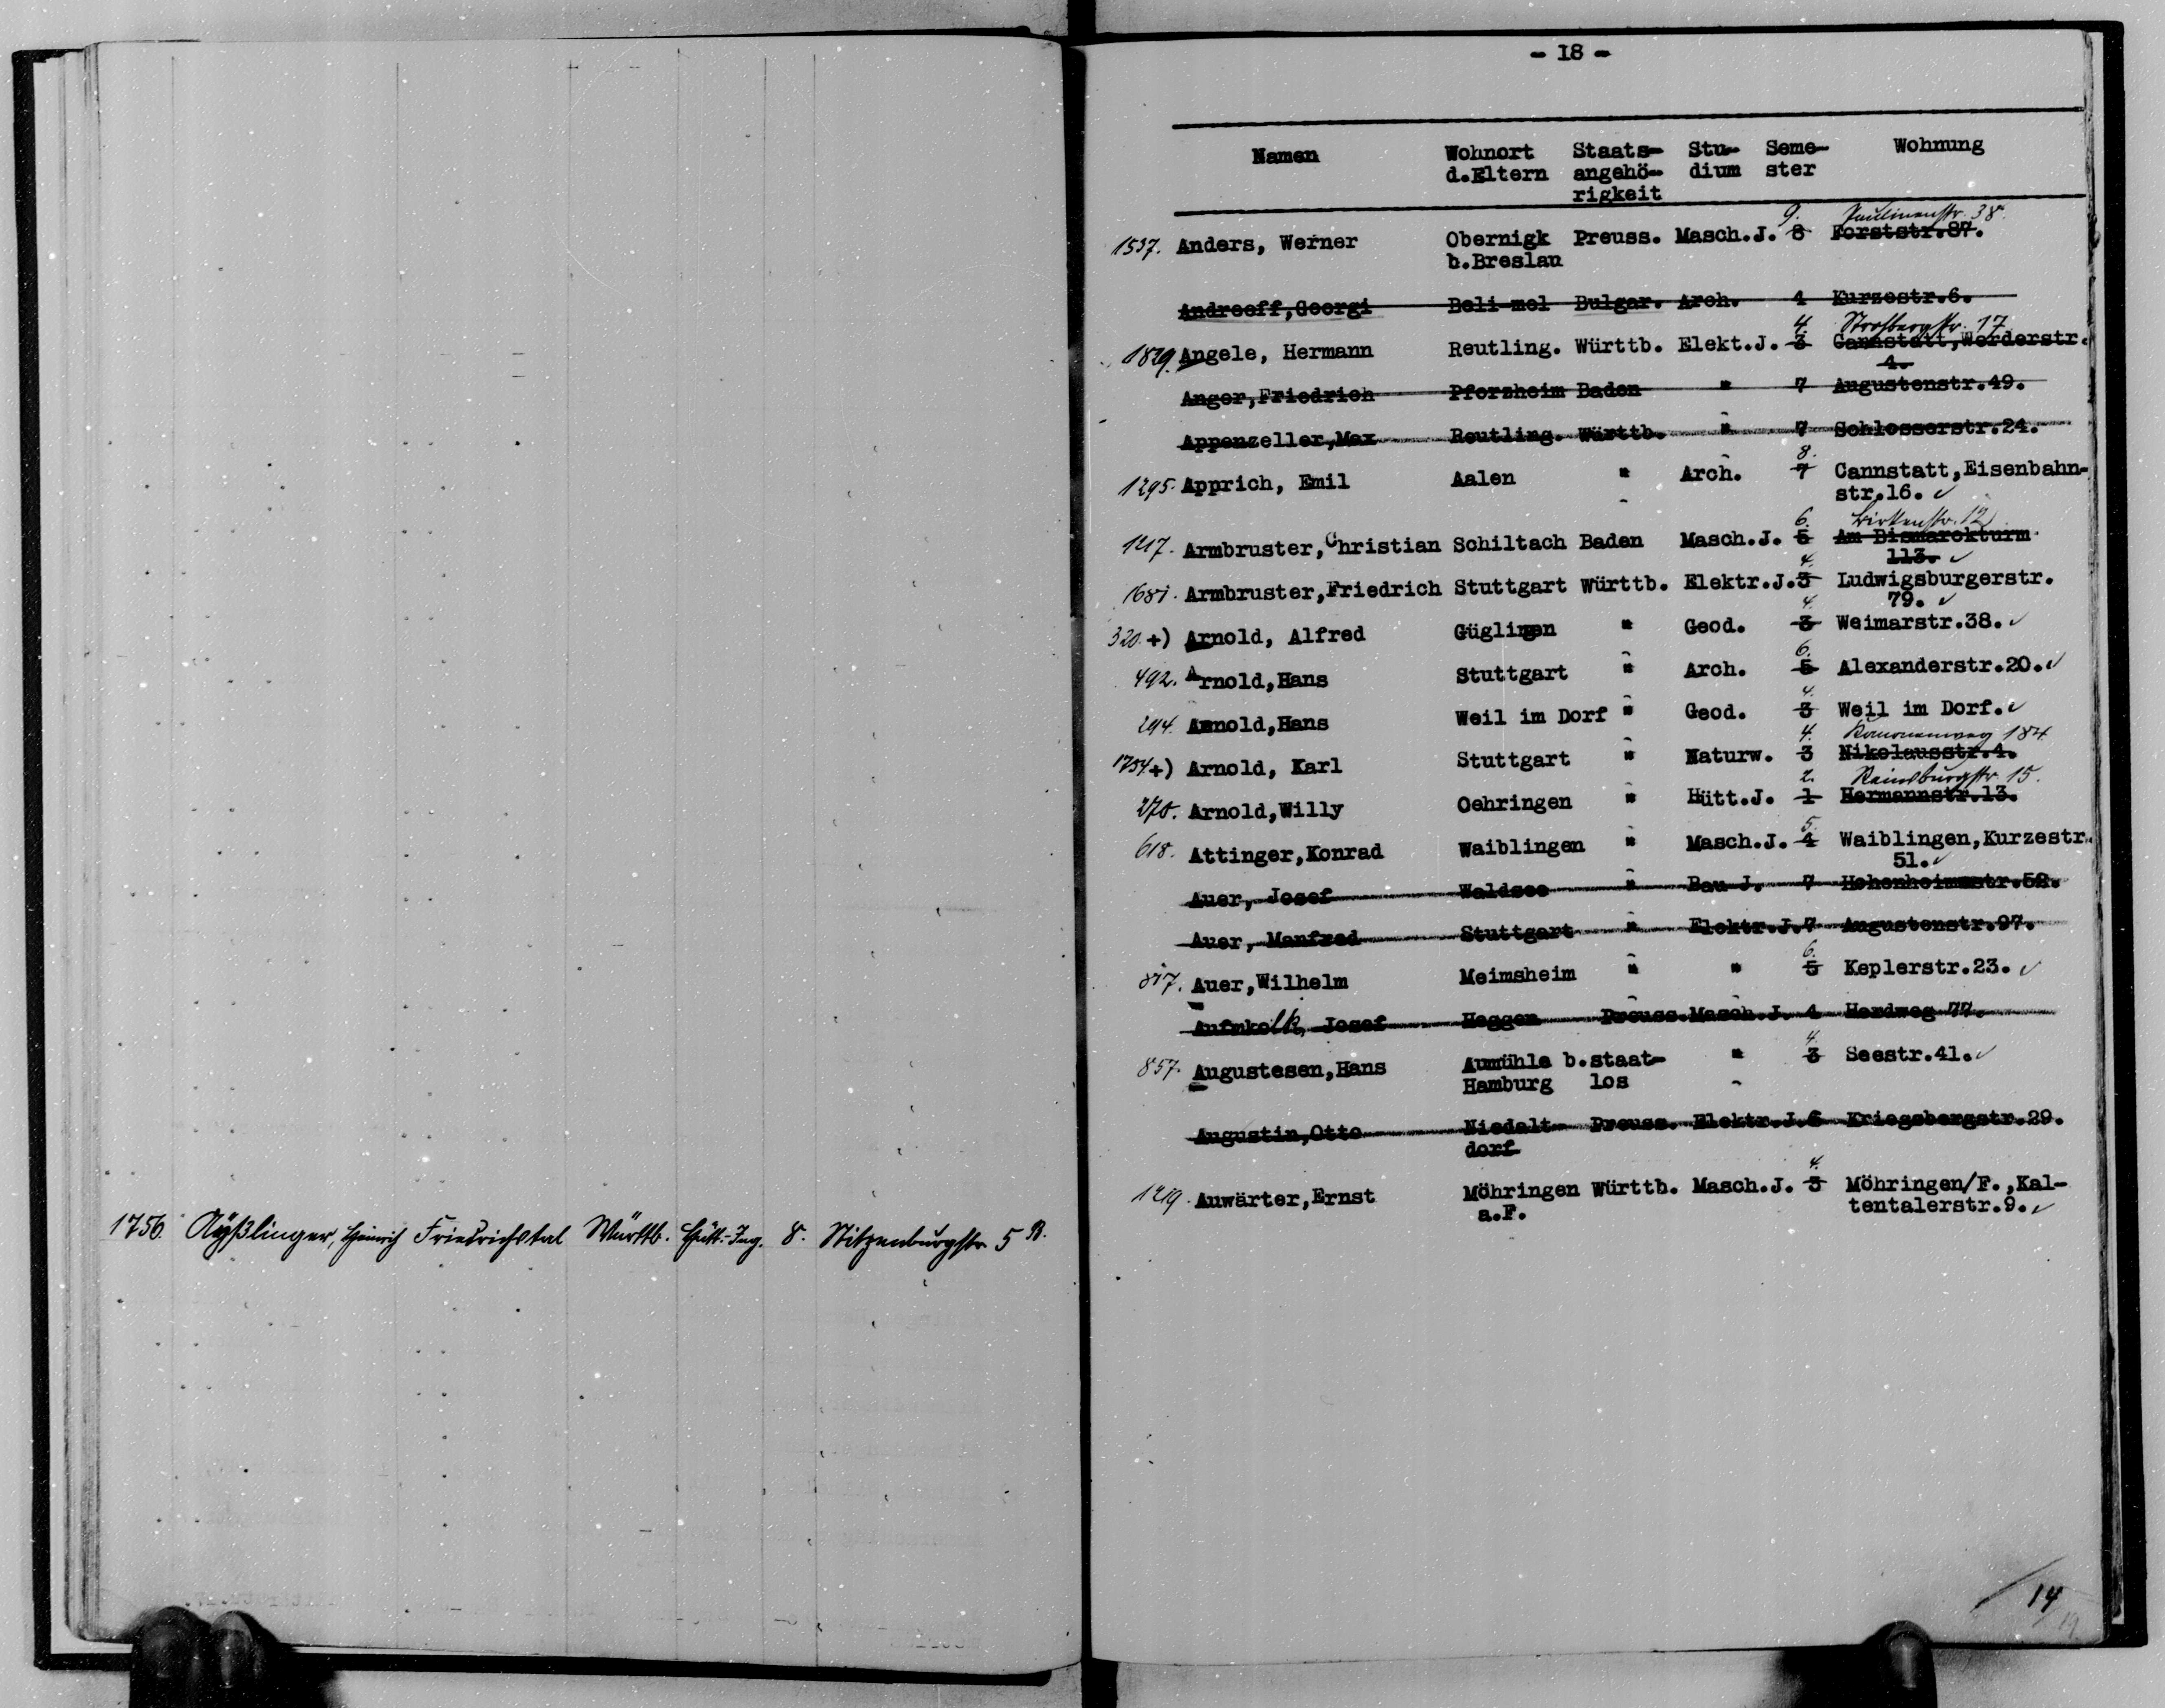 1756. Ayßlinger, Heinrich Friedrichstal Württb. Hütt.-Ing. 8. Stitzenburgstr. 5 B.
- 18 -
Namen Wohnort Staats- Stu- Seme- Wohnung
d.Eltern angehö- dium ster
rigkeit
9. Paulinenstr. 38.
1537. Anders, Werner Obernigk Preuss. Masch.J. 8 Forststr.87.
b.Breslau
Andreeff,Georgi Beli-mel Bulgar. Arch. 4 Kurzestr.6.
4. Straßbergstr. 17
1829. Angele, Hermann Reutling. Württb. Elekt.J. 3 Cannstatt,Werderstr.
4.
Anger,Friedrich Pforzheim Baden " 7 Augustenstr.49.
Appenzeller,Max Reutling. Württb. " 7 Schlosserstr.24.
8.
1295. Apprich, Emil Aalen " Arch. 7 Cannstatt,Eisenbahn-
str.16. ✓
6. Birkenstr. 12
1217. Armbruster,Christian Schiltach Baden Masch.J. 5 Am Bismarckturm
113. ✓
4.
1681. Armbruster,Friedrich Stuttgart Württb. Elektr.J.3 Ludwigsburgerstr.
79. ✓
4.
320.+) Arnold, Alfred Güglingen " Geod. 3 Weimarstr.38. ✓
6.
492. Arnold,Hans Stuttgart " Arch. 5 Alexanderstr.20. ✓
4.
294. Arnold,Hans Weil im Dorf " Geod. 3 Weil im Dorf. ✓
4. 184
1754+) Arnold, Karl Stuttgart " Naturw. 3 Nikolausstr.4.
2. Reinsburgstr. 15.
270. Arnold,Willy Oehringen " Hütt.J. 1 Hermannstr.13.
5.
618. Attinger,Konrad Waiblingen " Masch.J. 4 Waiblingen,Kurzestr.
51. ✓
Auer, Josef Waldsee " Bau J. 7 Hohenheimstr.52.
Auer, Manfred Stuttgart " Elektr.J.7 Augustenstr.97.
6.
817. Auer,Wilhelm Meimsheim " " 5 Keplerstr.23. ✓
Aufmkolk, Josef Heggen Preuss. Masch.J. 4 Herdweg 77.
4.
857. Augustesen,Hans Aumühle b. staat- " 3 Seestr.41. ✓
Hamburg los
Augustin,Otto Niedalt- Preuss. Elektr.J.6 Kriegsbergstr.29.
dorf
4.
1219. Auwärter,Ernst Möhringen Württb. Masch.J. 3 Möhringen/F.,Kal-
a.F. tentalerstr.9. ✓
14